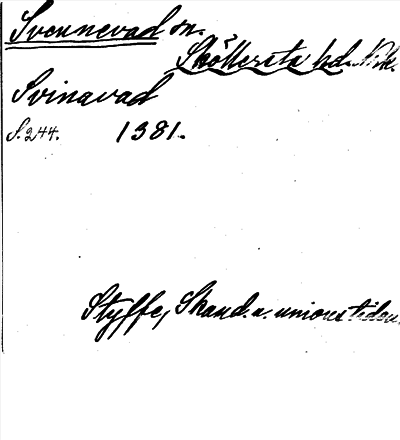 Svennevad sn.
Sköllersta hd. Nrk.
Svinavad
S. 244. 1381.
Styffe, Skand. u. unionstiden.